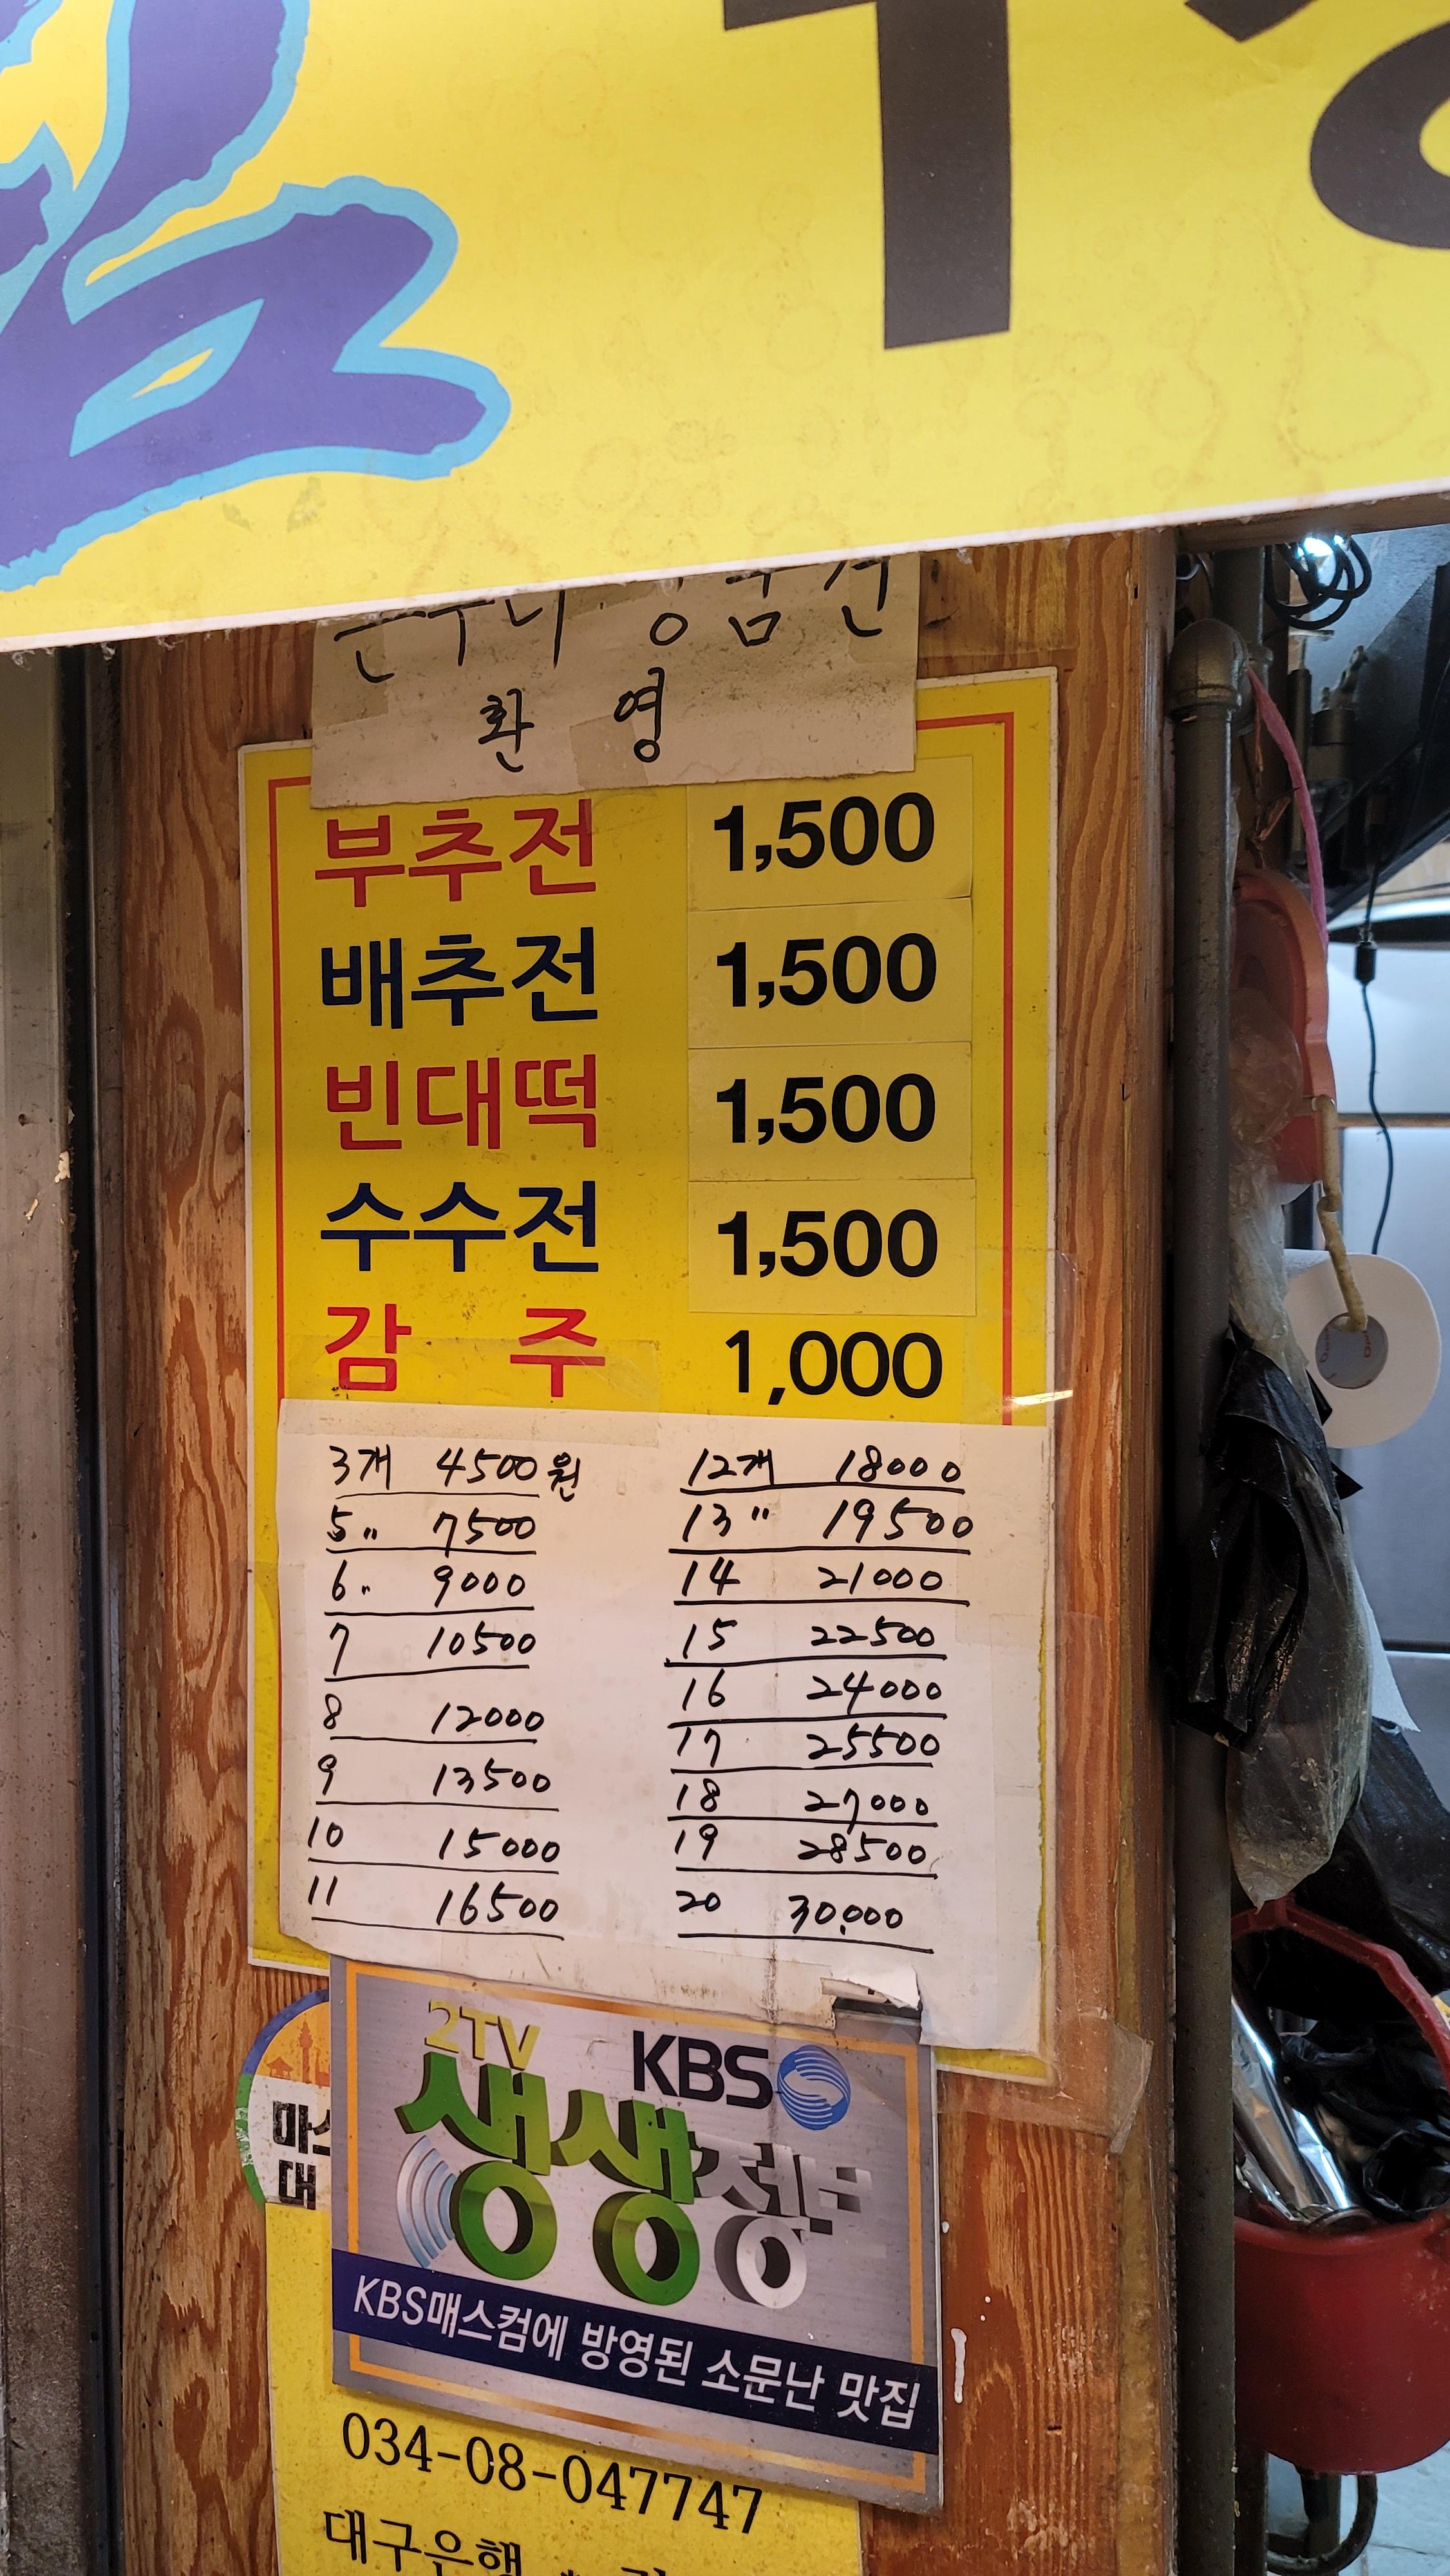 온누리 상품권
환 영
부추전 1,500
배추전 1,500
빈대떡 1,500
수수전 1,500
감 주 1,000
3개 4500원
5〃 7500
6〃 9000
7 10500
8 12000
9 13500
10 15000
11 16500
12개 18000
13〃 19500
14 21000
15 22500
16 24000
17 25500
18 27000
19 28500
20 30,000
2TV
KBS
생생정보
KBS매스컴에 방영된 소문난 맛집
034-08-047747
대구은행